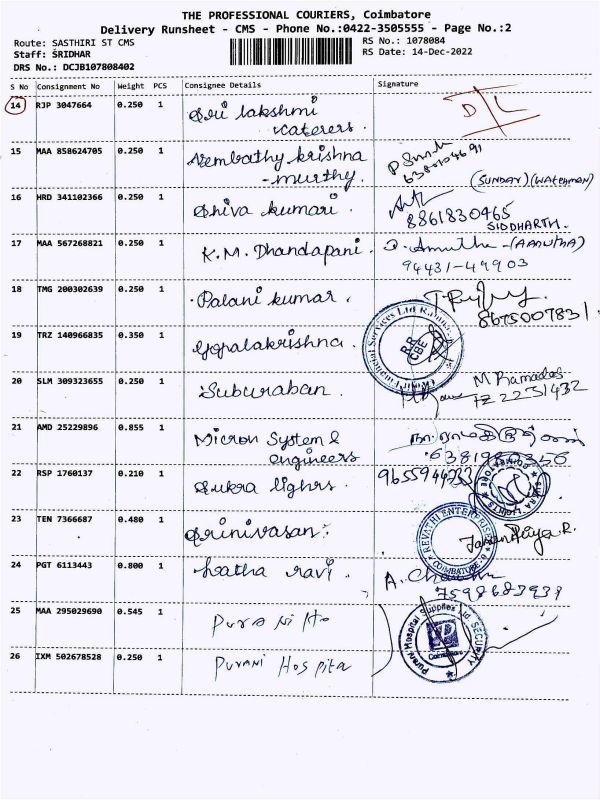 THE PROFESSIONAL COURIERS, Coimbatore
Delivery Runsheet - CMS - Phone No.:0422-3505555 - Page No.:2
Route: SASTHIRI ST CMS
RS No.: 1078084
Staff: SRIDHAR
RS Date: 14-Dec-2022
DRS No.: DCJB107808402
S No Consignment No Weight PCS Consignee Details Signature
14 RJP 3047664 0.250 1 Sri lakshmi D/L
caterers.
15 MAA 858624705 0.250 1 Vembathy krishna
-murthy.
(SUNDAY) (WATCHMAN)
16 HRD 341102366 0.250 1 Shiva kumari.
8861830465
SIDDHARTH.
17 MAA 567268821 0.250 1 K.M. Dhandapani. (AMUTHA)
94431-49903
18 TMG 200302639 0.250 1 Palani kumar.
8675007831
19 TRZ 140966835 0.350 1 Gopalakrishna.
20 SLM 309323655 0.250 1 Suburaban. M Ramadas
TZ 2231432
21 AMD 25229896 0.855 1 Micron System &
engineers
6381980356
22 RSP 1760137 0.210 1 Sukra lights. 9655944233
23 TEN 7366687 0.480 1 Srinivasan. REVATHI ENTERPRISE COIMBATORE
24 PGT 6113443 0.800 1 Latha ravi.
25 MAA 295029690 0.545 1 Purani Ho
Purani Hospital Supplies Ltd. SECURITY Coimbatore
26 IXM 502678528 0.250 1 Purani Hospita